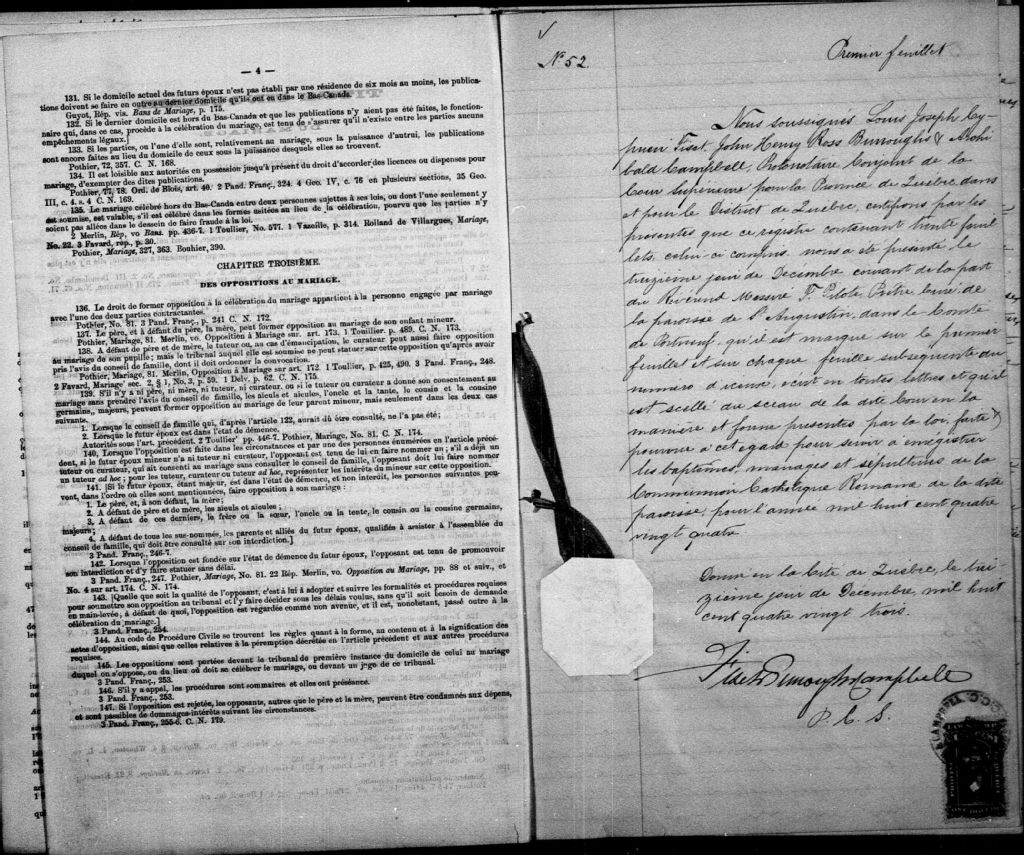 — 4 —
131. Si le domicile actuel des futurs époux n'est pas établi par une résidence de six mois au moins, les publica-
tions doivent se faire en outre au dernier domicile qu'ils ont eu dans le Bas-Canada.
Guyot, Rép. vis. Bans de Mariage, p. 175.
132. Si le dernier domicile est hors du Bas-Canada et que les publications n'y aient pas été faites, le fonction-
naire qui, dans ce cas, procède à la célébration du mariage, est tenu de s'assurer qu'il n'existe entre les parties aucuns
empêchements légaux.]
133. Si les parties, ou l'une d'elle sont, relativement au mariage, sous la puissance d'autrui, les publications
sont encore faites au lieu du domicile de ceux sous la puissance desquels elles se trouvent.
Pothier, 72, 357. C. N. 168.
134. Il est loisible aux autorités en possession jusqu'à présent du droit d'accorder les licences ou dispenses pour
mariage, d'exempter des dites publications.
Pothier, 77, 78. Ord. de Blois, art. 40. 2 Pand. Franç., 324. 4 Geo. IV, c. 76 en plusieurs sections, 35 Geo.
III, c. 4. s. 4 C. N. 169.
135. Le mariage célébré hors du Bas-Canda entre deux personnes sujettes à ses lois, ou dont l'une seulement y
est soumise, est valable, s'il est célébré dans les formes usitées au lieu de la célébration, pourvu que les parties n'y
soient pas allées dans le dessein de faire fraude à la loi.
2 Merlin, Rép, vo Bans. pp. 436-7. 1 Toullier, No. 577. 1 Vazeille, p. 314. Rolland de Villargues, Mariage,
No. 22. 3 Favard, rép., p. 30.
Pothier, Mariage, 327, 363. Bouhier, 390.
CHAPITRE TROISIÈME.
DES OPPOSITIONS AU MARIAGE.
136. Le droit de former opposition à la célébration du mariage appartient à la personne engagée par mariage
avec l'une des deux parties contractantes.
Pothier, No. 81. 3 Pand. Franç., p. 241 C. N. 172.
137. Le père, et à défaut du père, la mère, peut former opposition au mariage de son enfant mineur.
Pothier, Mariage, 81. Merlin, vo. Opposition à Mariage sur. art. 173. 1 Toullier, p. 489. C. N. 173.
138. A défaut de père et de mère, le tuteur ou, au cas d'émancipation, le curateur peut aussi faire opposition
au mariage de son pupille; mais le tribunal auquel elle est soumise ne peut statuer sur cette opposition qu'après avoir
pris l'avis du conseil de famille, dont il doit ordonner la convocation.
Pothier, Mariage, 81. Merlin, Opposition à Mariage sur art. 172. 1 Toullier, p. 425, 490. 3 Pand. Franç., 248.
2 Favard, Mariage' sec. 2, § 1, No. 3, p. 59. 1 Delv. p. 62. C. N. 175.
139. S'il n'y a ni père, ni mère, ni tuteur, ni curateur, ou si le tuteur ou curateur a donné son consentement au
mariage sans prendre l'avis du conseil de famille, les aïeuls et aïeules, l'oncle et la tante, le cousin et la cousine
germains, majeurs, peuvent former opposition au mariage de leur parent mineur, mais seulement dans les deux cas
suivants.
1. Lorsque le conseil de famille qui, d'après l'article 122, aurait dû être consulté, ne l'a pas été;
2. Lorsque le futur époux est dans l'état de démence.
Autorités sous l'art. précédent. 2 Toullier' pp. 446-7. Pothier, Mariage, No. 81. C. N. 174.
140. Lorsque l'opposition est faite dans les circonstances et par une des personnes énumérées en l'article précé-
dent, si le futur époux mineur n'a ni tuteur ni curateur, l'opposant est tenu de lui en faire nommer un; s'il a déjà un
tuteur ou curateur, qui ait consenti au mariage sans consulter le conseil de famille, l'opposant doit lui faire nommer
un tuteur ad hoc; pour les tuteur, curateur ou tuteur ad hoc, représenter les intérêts du mineur sur cette opposition.
141. [Si le futur époux, étant majeur, est dans l'état de démence, et non interdit, les personnes suivantes peu-
vent, dans l'ordre où elles sont mentionnées, faire opposition à son mariage:
1. Le père, et, à son défaut, la mère;
2. A défaut de père et de mère, les aïeuls et aïeules;
3. A défaut de ces derniers, le frère ou la sœur, l'oncle ou la tente, le cousin ou la cousine germains,
majeurs;
4. A défaut de tous les sus-nommés, les parents et alliés du futur époux, qualifiés à assister à l'assemblée du
conseil de famille, qui doit être consulté sur son interdiction.]
3 Pand. Franç., 246-7.
142. Lorsque l'opposition est fondée sur l'état de démence du futur époux, l'opposant est tenu de promouvoir
son interdiction et d'y faire statuer sans délai.
3 Pand. Franç., 247. Pothier, Mariage, No. 81. 22 Rép. Merlin, vo. Opposition au Mariage, pp. 88 et suiv., et
No. 4 sur art. 174. C. N. 174.
143. [Quelle que soit la qualité de l'opposant, c'est à lui à adopter et suivre les formalités et procédures requises
pour soumettre son opposition au tribunal et l'y faire décider sous les délais voulus, sans qu'il soit besoin de demande
en main-levée; à défaut de quoi, l'opposition est regardée comme non avenue, et il est, nonobstant, passé outre à la
célébration du mariage.]
3 Pand. Franç., 254.
144. Au code de Procédure Civile se trouvent les règles quant à la forme, au contenu et à la signification des
actes d'opposition, ainsi que celles relatives à la péremption décrétée en l'article précédent et aux autres procédures
requises.
145. Les oppositions sont portées devant le tribunal de première instance du domicile de celui au mariage
duquel on s'oppose, ou du lieu où doit se célébrer le mariage, ou devant un juge de ce tribunal.
3 Pand. Franç., 253.
146. S'il y a appel, les procédures sont sommaires et elles ont préséance.
3 Pand. Franç., 253.
147. Si l'opposition est rejetée, les opposants, autres que le père et la mère, peuvent être condamnés aux dépens,
et sont passibles de dommages-intérêts suivant les circonstances.
3 Pand. Franç., 255-6. C. N. 179.
No 52
Premier feuillet
Nous soussignés Louis Joseph Cy-
prien Fiset, John Henry Ross Burroughs & Archi
bald Campbell, Protonotaire Conjoint de la
Cour Supérieure pour la Province de Québec dans
et pour le District de Québec, certifions par les
présentes que ce registre contenant trente feuil
lets, celui-ci compris nous a été présenté le
treizième jour de Decembre courant de la part
du Révérend Messire F. Pilote, Prêtre Curé de
la paroisse de St Augustin, dans le Comté
de Portneuf, qu'il est marqué sur le premier
feuillet et sur chaque feuille subséquente du
numéro d'icelui, écrit en toutes lettres et qu'il
est scellé du sceau de la dite Cour en la
manière et forme presentés par la loi, faite &
pourvue à cet égard pour servir à enregistrer
les baptêmes, mariages et sépultures de la
Communion Catholique Romaine de la dite
paroisse, pour l'année mil huit cent quatre
vingt quatre
Donné en la Cité de Québec, le trei
zième jour de Décembre, mil huit
cent quatre vingt trois.
Fiset Burroughs Campbell
P. C. S.